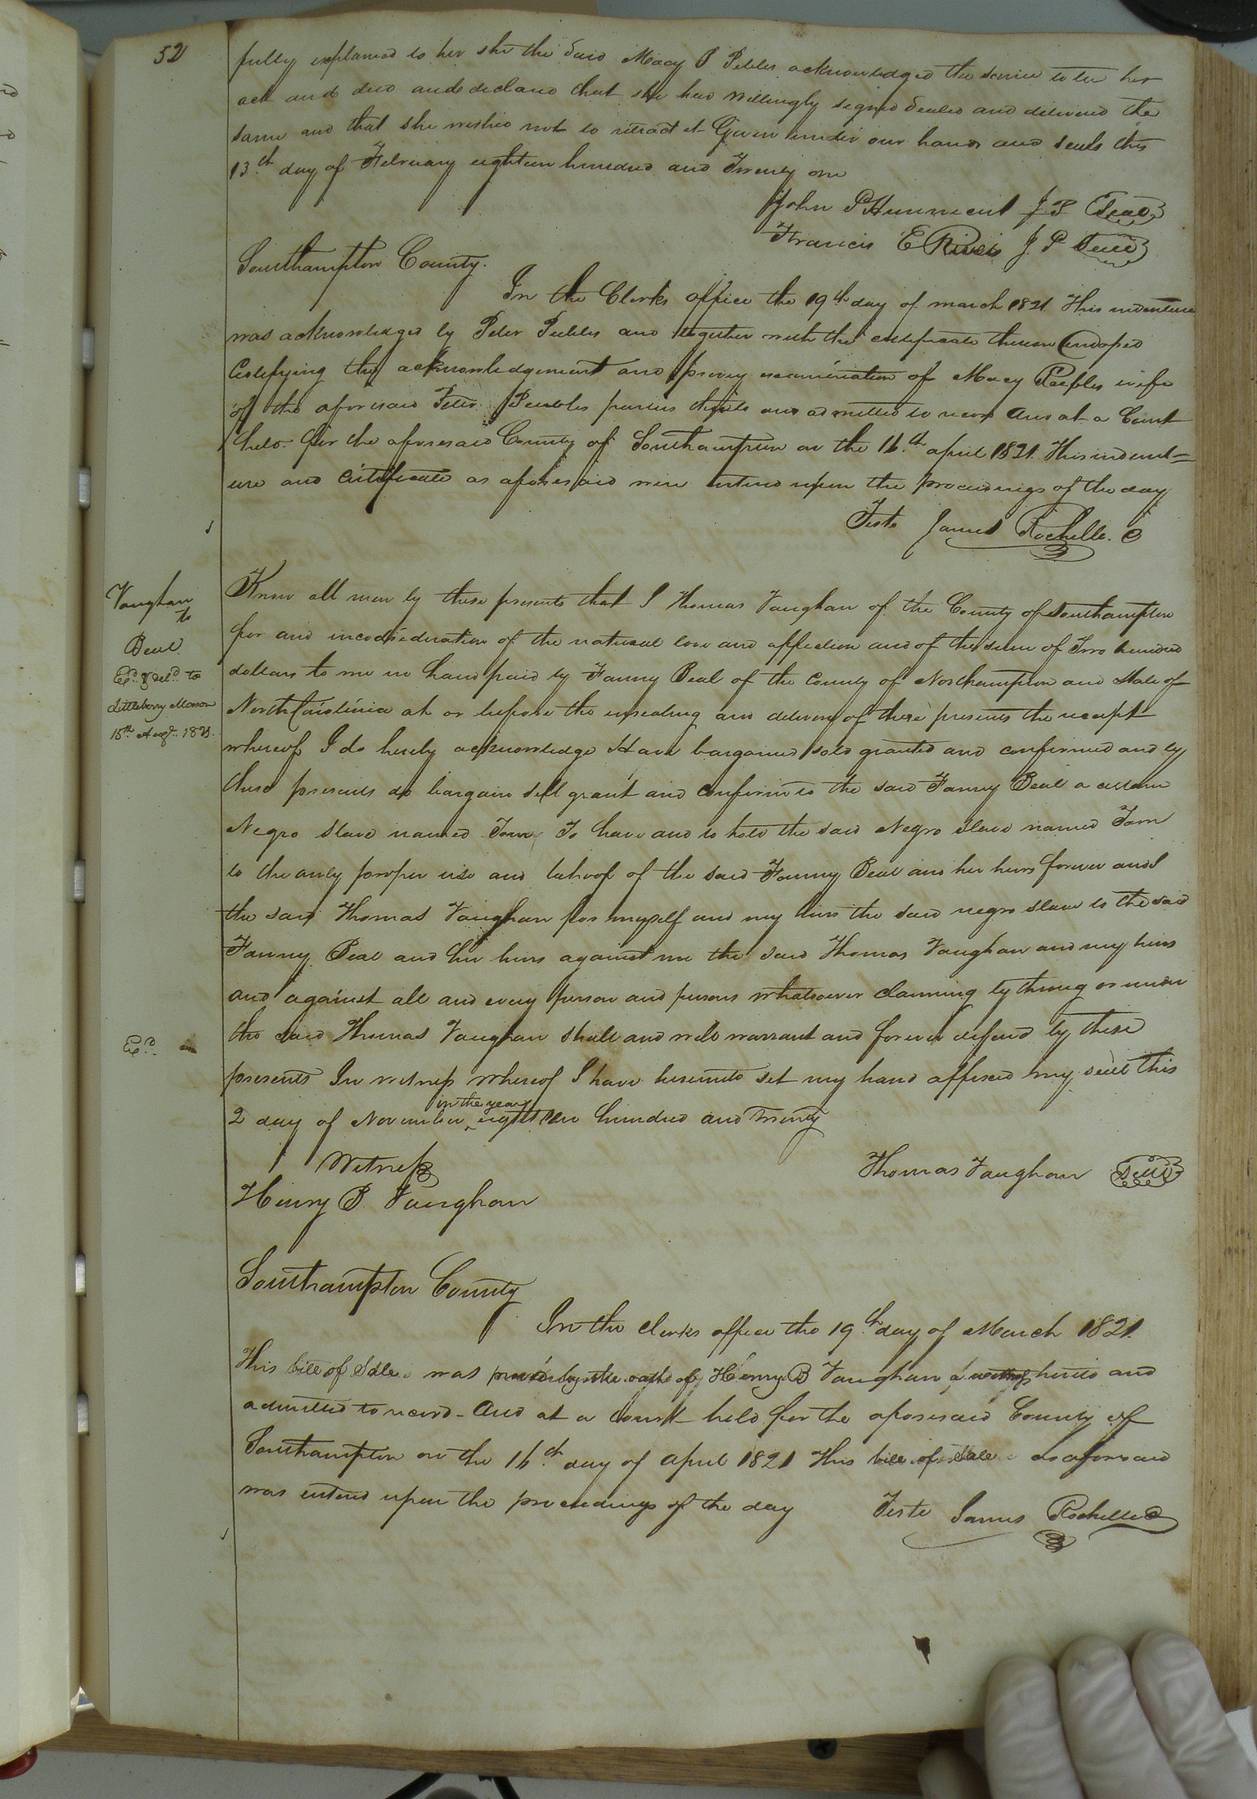 52
fully explained to her she the said Macy P Peebles acknowledged the same to be her
act and deed and declared that she had willingly signed sealed and delivered the
same and that she wished not to retract it Given under our hands and seals this
13th day of February eighteen hundred and Twenty one
John P Hunnicut J P Seal
Francis E Rives J P Seal
Southampton County.
In the Clerks office the 19th day of march 1821 This indenture
was acknowledged by Peter Peebles and together with the certificate thereon endorsed
Certifying the acknowledgement and privy examination of Macy Peebles wife
of the aforesaid Peter Peebles parties thereto and admitted to record And at a Court
held for the aforesaid County of Southampton on the 16th april 1821 This indent=
ure and certificate as aforesaid were entered upon the proceedings of the day
Teste James Rochelle. C
Vaughan
to
Beal
Exd. & deld. to
Littleberry Mason
15th Augt. 1823.
Know all men by these presents that I Thomas Vaughan of the County of Southampton
for and inconsideration of the natural love and affection and of the sum of Two hundred
dollars to me in hand paid by Fanny Beal of the County of Northampton and State of
North Carolinia at or before the ensealing and delivery of these presents the receipt
whereof I do hereby acknowledge Have bargained sold granted and confirmed and by
these presents do bargain sell grant and confirm to the said Fanny Beal a certain
Negro Slave named Tom To have and to hold the said Negro slave named Tom
to the only proper use and behoof of the said Fanny Beal and her heirs forever and I
the said Thomas Vaughan for myself and my heirs the said negro slave to the said
Fanny Beal and her heirs against me the said Thomas Vaughan and my heirs
and against all and every person and persons whatsoever claiming by throug or under
the said Thomas Vaughan shall and will warrant and forever defend by these
Exd.
presents In witness whereof I have hereunto set my hand affixed my seal this
2 day of November in the year eighteen hundred and twenty
Witness
Thomas Vaughan Seal
Henry B Vaughan
Southampton County
In the clerks office the 19th day of March 1821
This bill of Sale was proved by the oath of Henry B Vaughan a witness hereto and
admitted to record - And at a Court held for the aforesaid County of
Southampton on the 16th day of april 1821 This bill of sale as aforesaid
was entered upon the proceedings of the day
Teste James Rochelle C